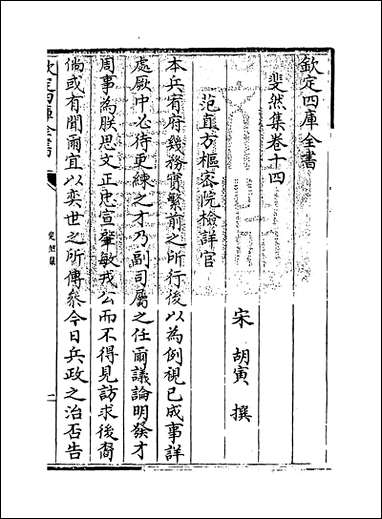 欽定四庫全書
斐然集卷十四
宋 胡寅 撰
范直方樞密院檢詳官
本兵宥府機務實繁前之所行後以為例視已成事詳
處厥中必待更練之才乃副司屬之任爾議論明發才
周事為朕思文正忠宣肇敏戎公而不得見訪求後裔
倘或有聞爾宜以奕世之所傳參今日兵政之治否告
欽定四庫全書
斐然集